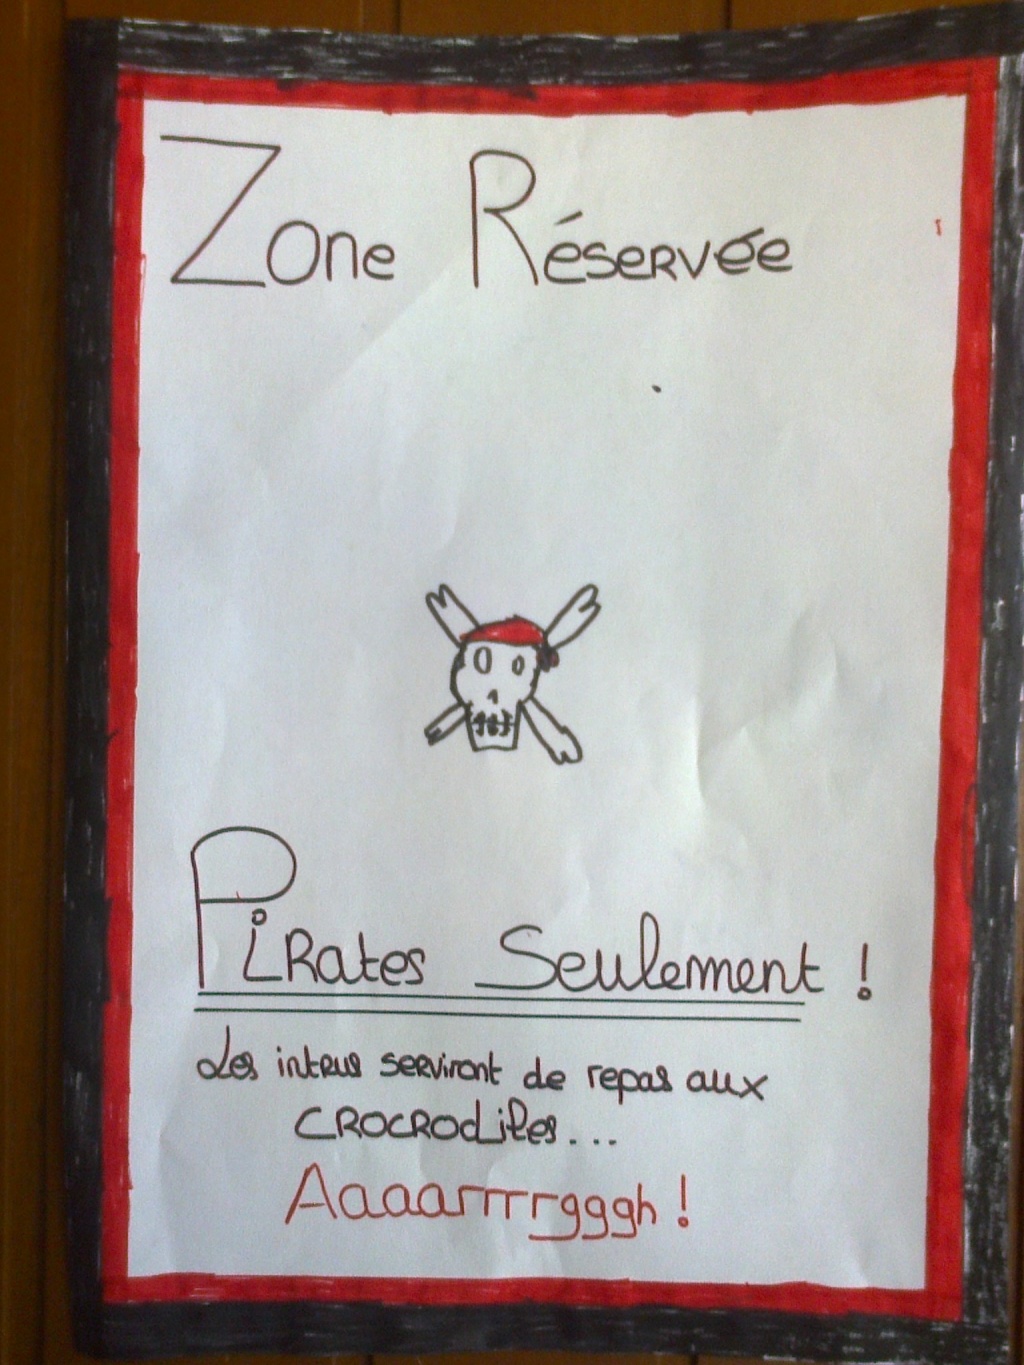 Zone Réservée
Pirates Seulement !
Les intrus serviront de repas aux
CROCRODiles...
Aaaarrrrgggh !